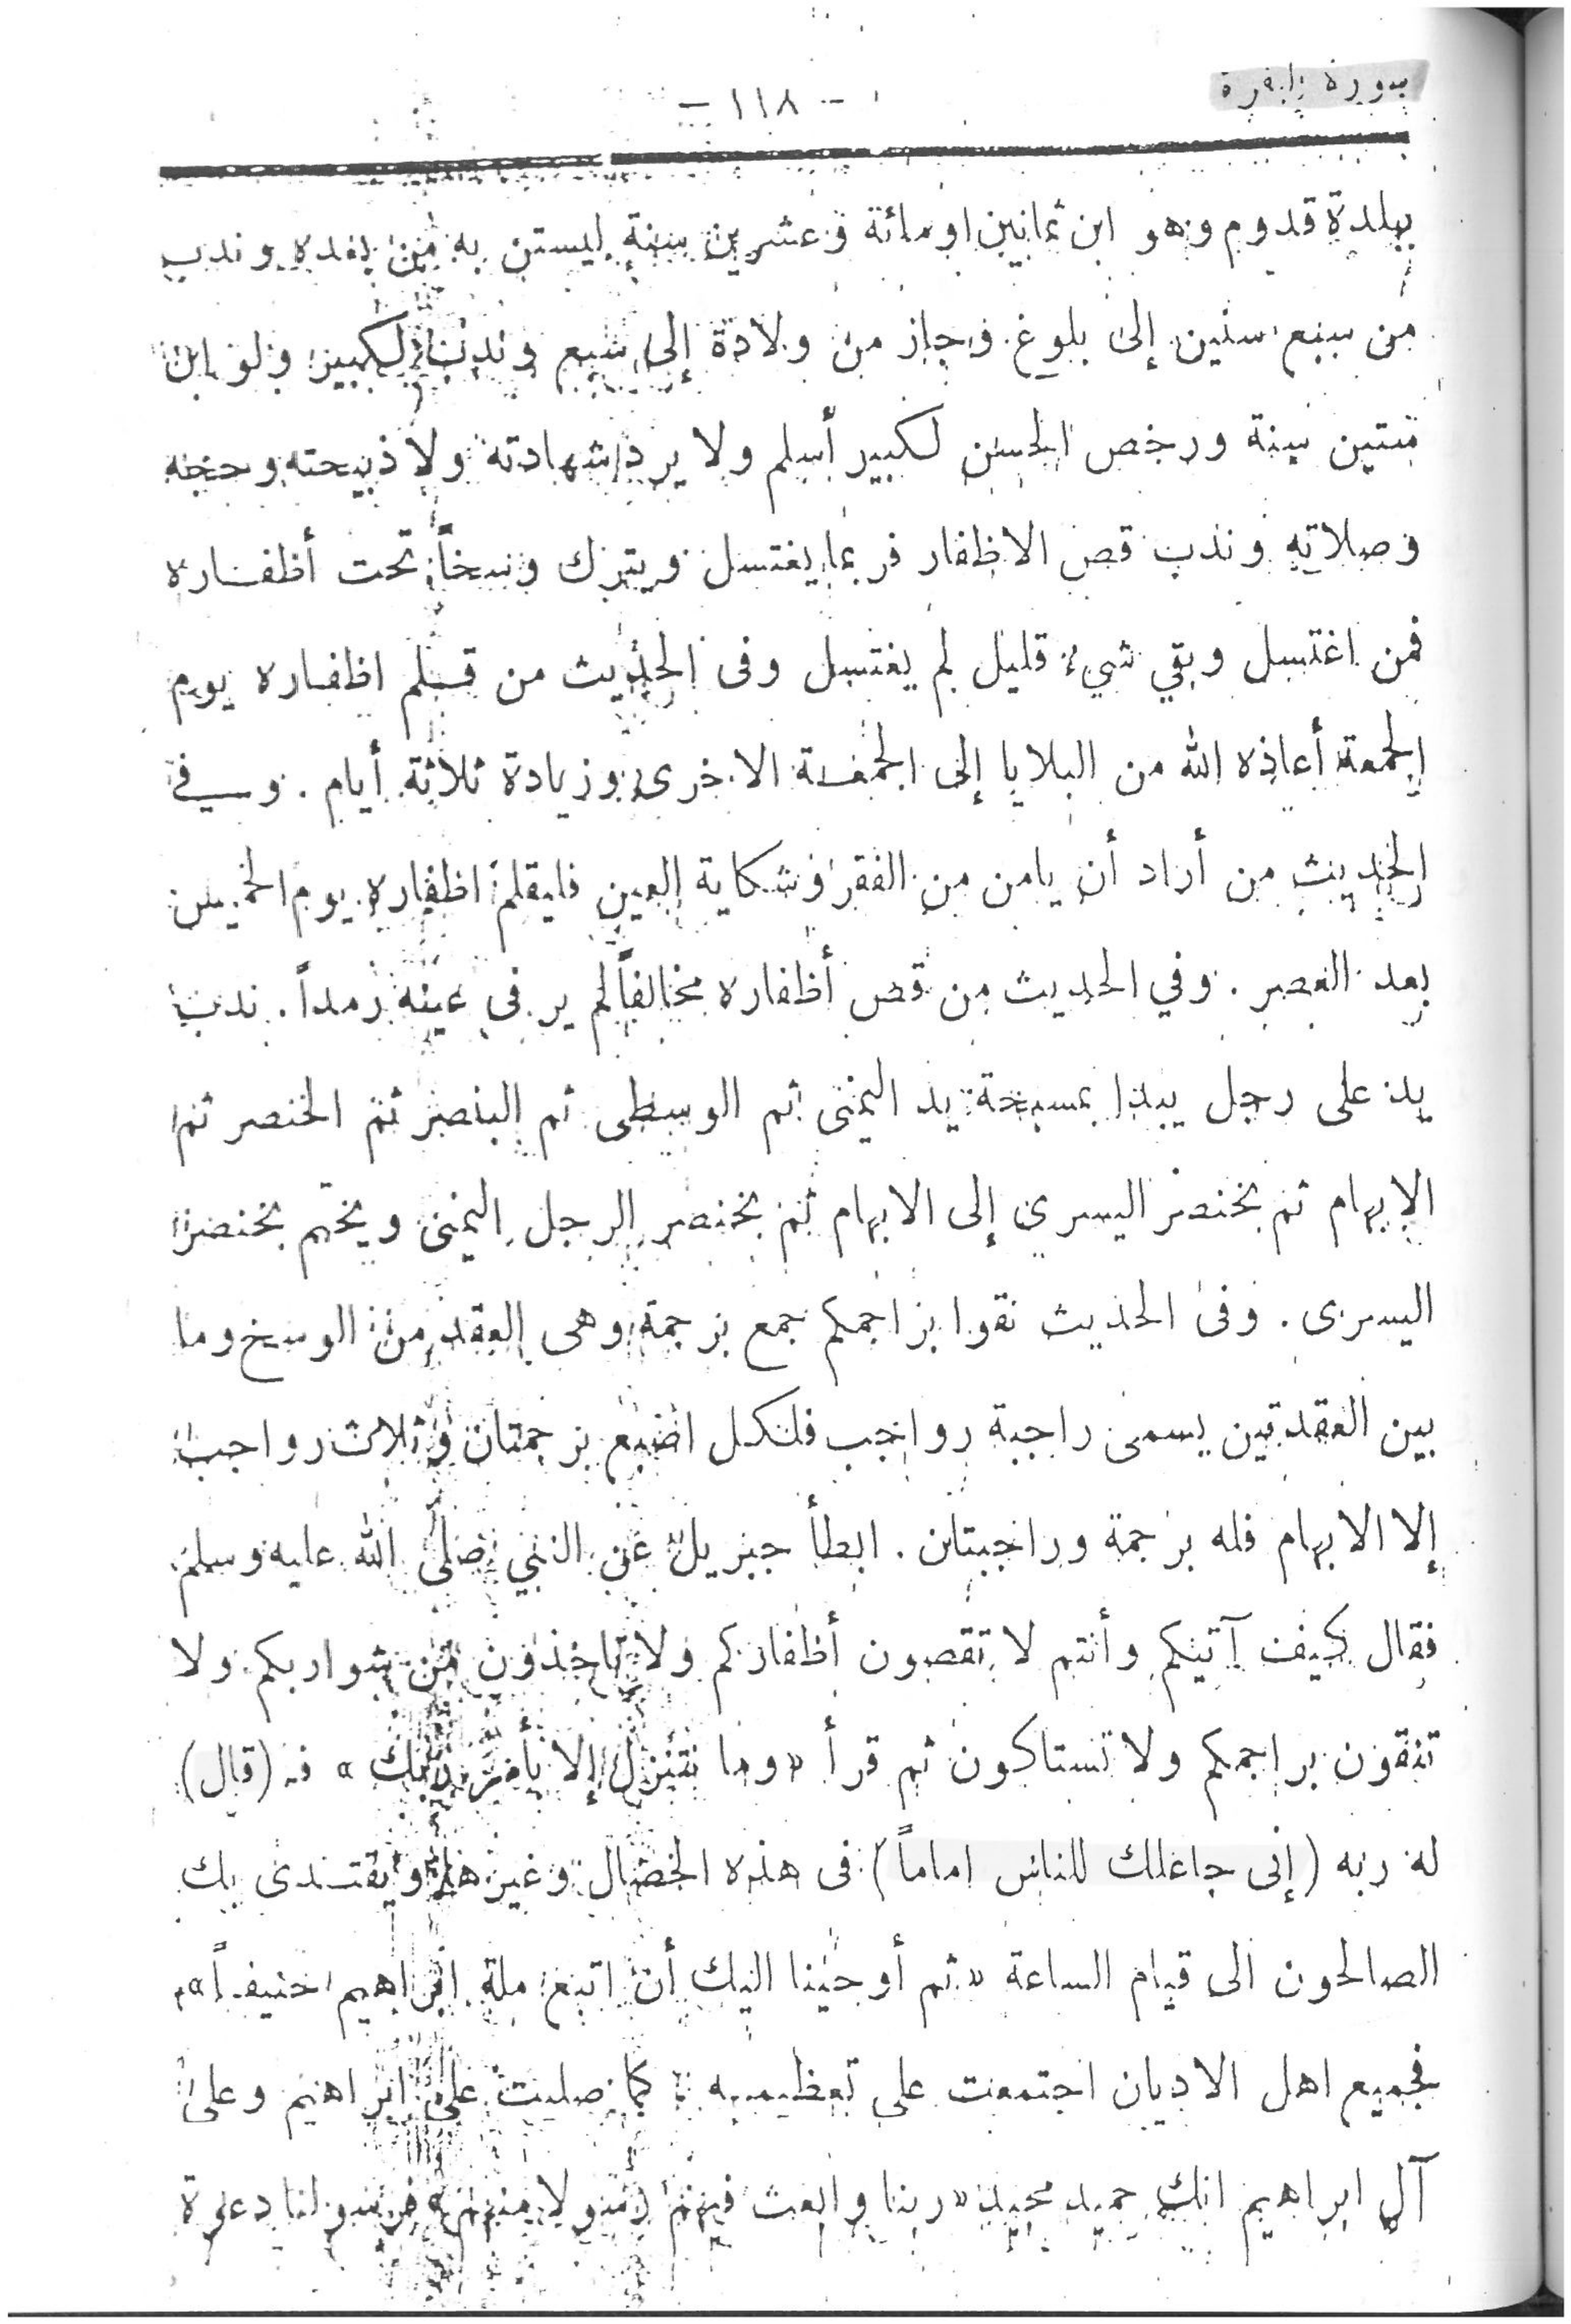 سورة البقرة
- ١١٨ -
ببلدة قدوم وهو ابن ثمانين او مائة وعشرين سنة ليستن به من بعده وندب
من سبع سنين إلى بلوغ وجاز من ولادة إلى سبع وندب لكبير ولو ابن
ستين سنة ورخص الحسن لكبير أسلم ولا يرد شهادته ولا ذبيحته وحجه
وصلاته وندب قص الاظفار فربما يغتسل ويترك وسخاً تحت أظفاره
فمن اغتسل وبقي شيء قليل لم يغتسل وفى الحديث من قلم اظفاره يوم
الجمعة أعاذه الله من البلايا إلى الجمعة الاخرى وزيادة ثلاثة أيام . وفي
الحديث من أراد أن يامن من الفقر وشكاية العين فليقلم اظفاره يوم الخميس
بعد العصر . وفي الحديث من قص أظفاره مخالفاً لم ير فى عينه رمداً . ندب
يد على رجل يبدا بمسبحة يد اليمنى ثم الوسطى ثم البنصر ثم الخنصر ثم
الابهام ثم بخنصر اليسرى إلى الابهام ثم بخنصر الرجل اليمنى ويختم بخنصر
اليسرى . وفى الحديث نقوا براجمكم جمع برجمة وهى العقد من الوسخ وما
بين العقدتين يسمى راجبة رواجب فلكل اصبع برجمتان وثلاث رواجب
إلا الابهام فله برجمة وراجبتان . ابطأ جبريل عن النبي صلى الله عليه وسلم
فقال كيف آتيكم وأنتم لا تقصون أظفاركم ولا تاخذون من شواربكم ولا
تنقون براجمكم ولا تستاكون ثم قرأ « وما نتنزل إلا بأمر ربك » فـ (قال)
له ربه (إنى جاعلك للناس اماماً) فى هذه الخصال وغيرها ويقتدى بك
الصالحون الى قيام الساعة « ثم أوحينا اليك أن اتبع ملة ابراهيم حنيفاً »
فجميع اهل الاديان اجتمعت على تعظيمه : كما صليت على ابراهيم وعلى
آل ابراهيم انك حميد مجيد « ربنا وابعث فيهم رسولا منهم » فرسولنا دعوة